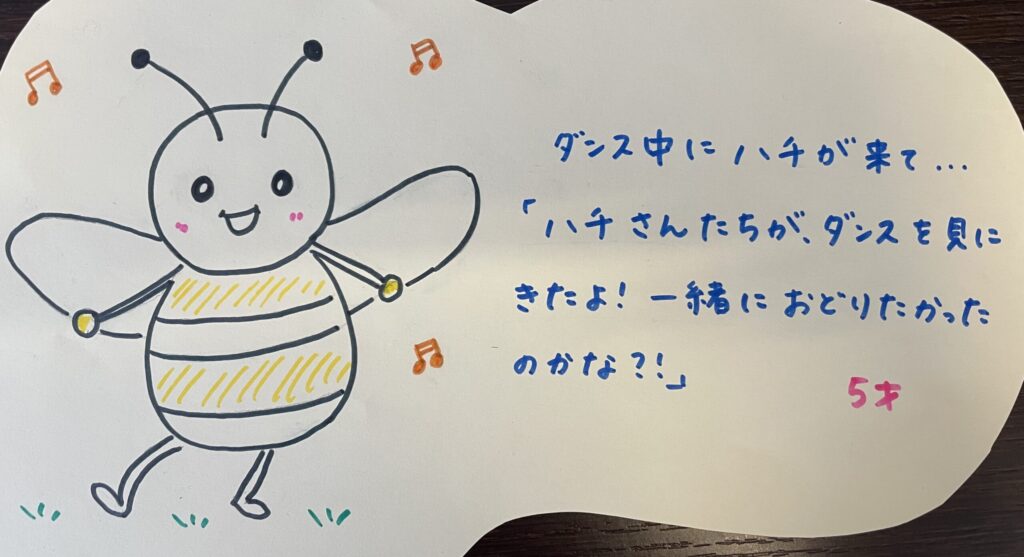 ダンス中にハチが来て...
「ハチさんたちが、ダンスを見に
きたよ!一緒におどりたかった
のかな?!」
5才